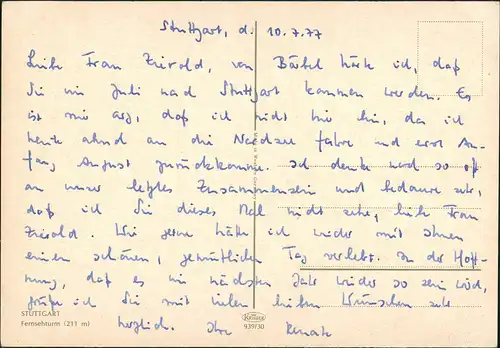 Stuttgart, d. 10.7.77
Liebe Frau Zierold, von Bärbel hörte ich, daß
Sie im Juli nach Stuttgart kommen werden. Es
ist mir arg, daß ich nicht hier bin, da ich
heute abend an die Nordsee fahre und erst An-
fang August zurückkomme. Ich denke noch so oft
an unser letztes Zusammensein und bedaure sehr,
daß ich Sie dieses Mal nicht sehe, liebe Frau
Zierold. Wie gerne hätte ich wieder mit Ihnen
einen schönen, gemütlichen Tag verlebt. In der Hoff-
nung, daß es im nächsten Jahr wieder so sein wird,
grüße ich Sie mit vielen lieben Wünschen sehr
herzlich. Ihre Renate
STUTTGART
Fernsehturm (211 m)
Krüger
939/30